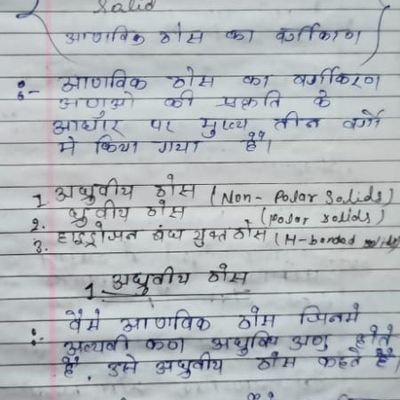 Salid
आणविक ठोस का वर्गीकरण
:- आणविक ठोस का वर्गीकरण
अणुओ की प्रकृति के
आधार पर मुख्य तीन वर्गो
मे किया गया है।
1. अध्रुवीय ठोस (Non-Polar Solids)
2. ध्रुवीय ठोस (polar solids)
3. हाइड्रोजन बंध युक्त ठोस (H-bonded solids)
1. अध्रुवीय ठोस
:- वैसे आणविक ठोस जिनमे
अवयवी कण अध्रुविय अणु होते
है, उसे अध्रुवीय ठोस कहते है।